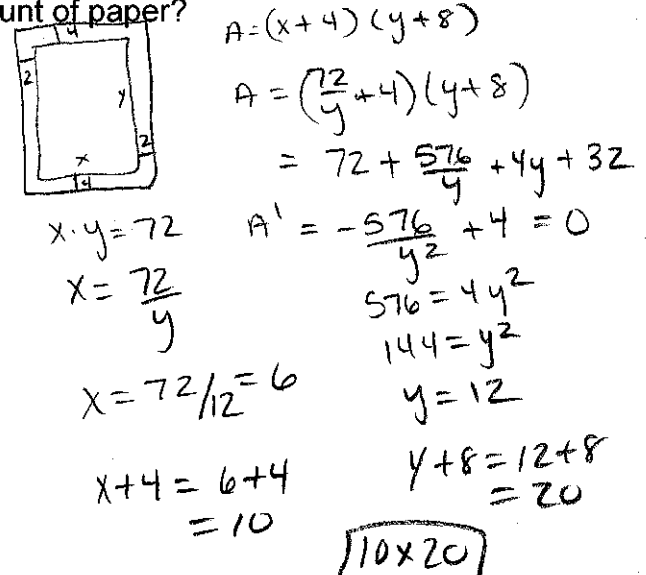 unt of paper?
4
2
y
2
x
4
A=(x+4)(y+8)
A = (72/y + 4)(y+8)
= 72 + 576/y + 4y + 32
x·y=72
A' = -576/y² + 4 = 0
x= 72/y
576 = 4y²
144=y²
x=72/12=6
y=12
x+4 = 6+4
= 10
y+8=12+8
= 20
10x20